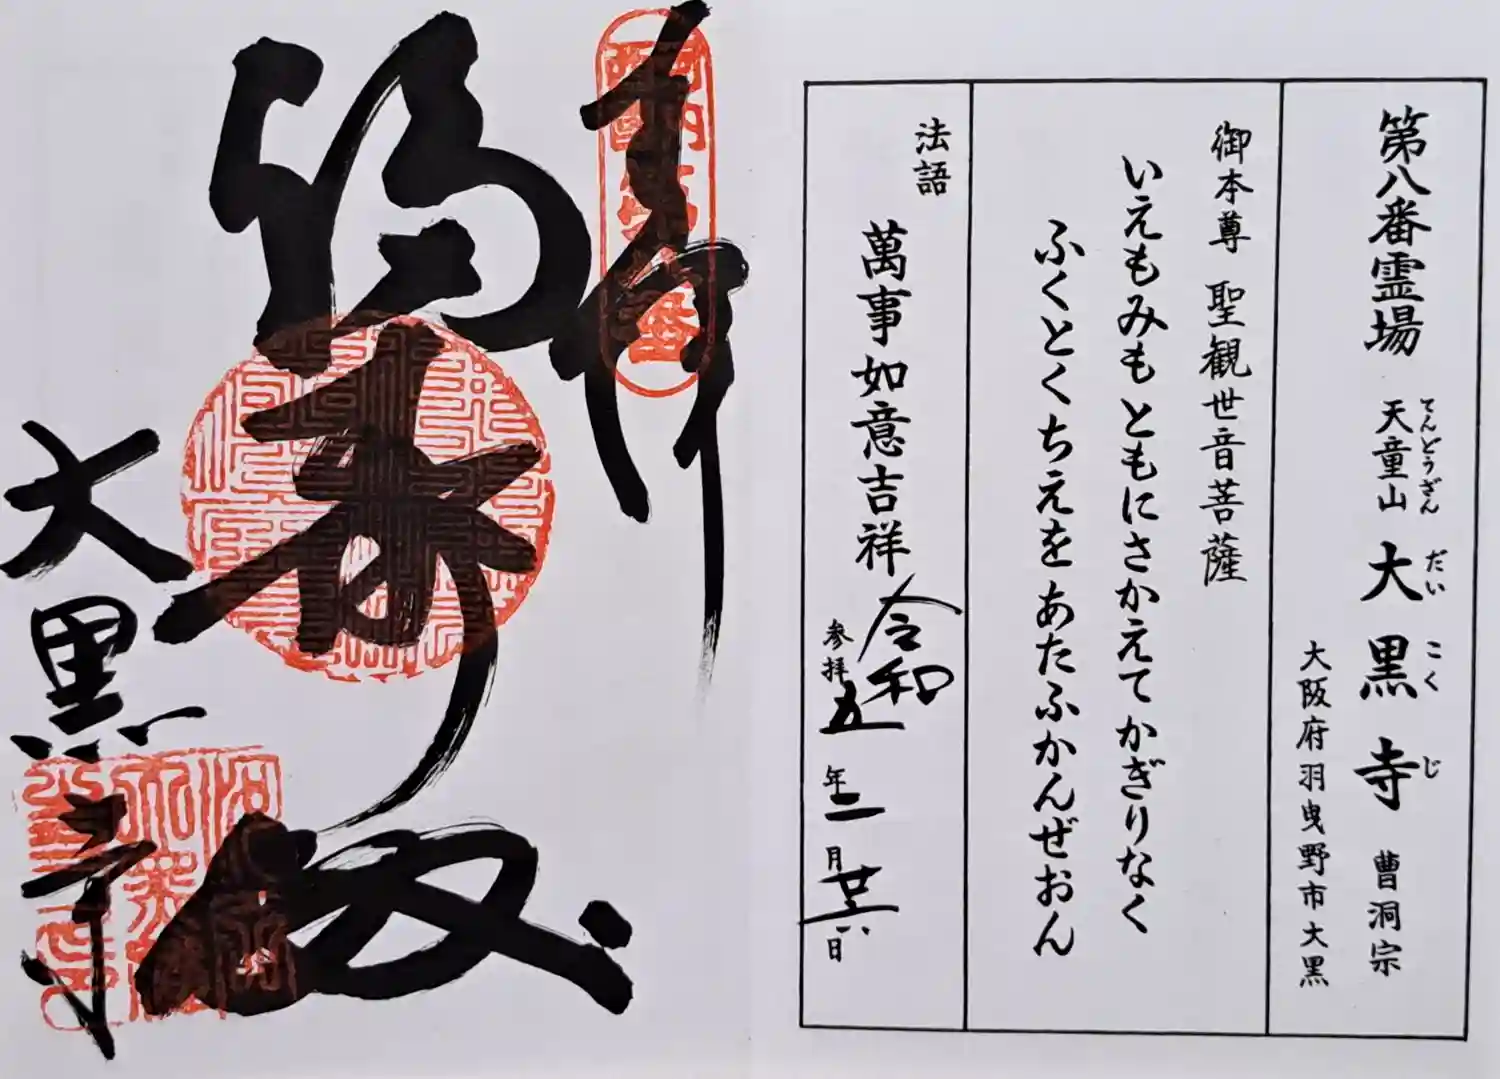 第八番霊場 天童山 大黒寺 曹洞宗
てんどうざん だいこくじ
大阪府羽曳野市大黒
御本尊 聖観世音菩薩
いえもみもともにさかえてかぎりなく
ふくとくちえをあたふかんぜおん
法語 萬事如意吉祥
参拝 令和五年二月廿六日
奉拝
福寿殿
大黒寺